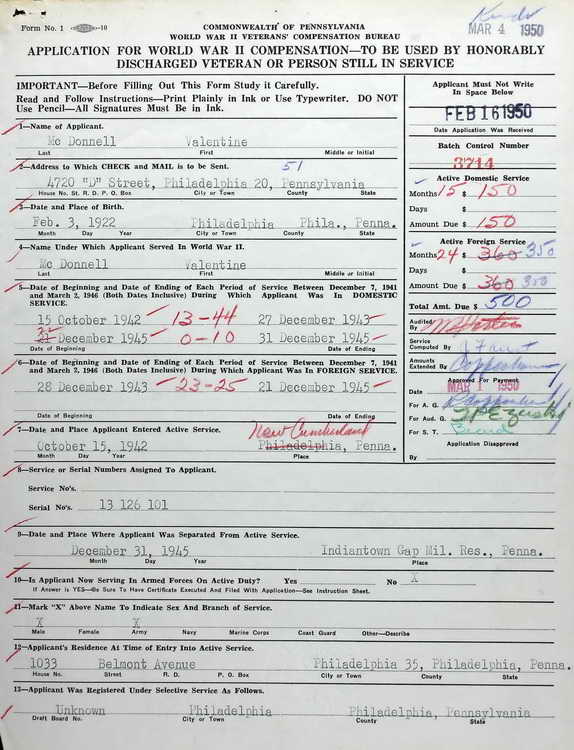 Form No. 1
COMMONWEALTH OF PENNSYLVANIA
WORLD WAR II VETERANS' COMPENSATION BUREAU
MAR 4 1950
APPLICATION FOR WORLD WAR II COMPENSATION—TO BE USED BY HONORABLY
DISCHARGED VETERAN OR PERSON STILL IN SERVICE
IMPORTANT—Before Filling Out This Form Study it Carefully.
Read and Follow Instructions—Print Plainly in Ink or Use Typewriter. DO NOT
Use Pencil—All Signatures Must Be in Ink.
Applicant Must Not Write
In Space Below
FEB 16 1950
Date Application Was Received
Batch Control Number
3714
Active Domestic Service
Months 15 $ 150
Days $
Amount Due $ 150
Active Foreign Service
Months 24 $ 360 350
Days $
Amount Due $ 360 350
Total Amt. Due $ 500
Audited
By
Service
Computed By
Amounts
Extended By
Approved For Payment
Date MAR 1 1950
For A. G.
For Aud. G.
For S. T.
Application Disapproved
By
1—Name of Applicant.
Mc Donnell Valentine
Last First Middle or Initial
2—Address to Which CHECK and MAIL is to be Sent. 51
4720 "D" Street, Philadelphia 20, Pennsylvania
House No. St. R. D. P. O. Box City or Town County State
3—Date and Place of Birth.
Feb. 3, 1922 Philadelphia Phila., Penna.
Month Day Year City or Town County State
4—Name Under Which Applicant Served In World War II.
Mc Donnell Valentine
Last First Middle or Initial
5—Date of Beginning and Date of Ending of Each Period of Service Between December 7, 1941
and March 2, 1946 (Both Dates Inclusive) During Which Applicant Was In DOMESTIC
SERVICE.
15 October 1942 13-44 27 December 1943
21 December 1945 0-10 31 December 1945
Date of Beginning Date of Ending
6—Date of Beginning and Date of Ending of Each Period of Service Between December 7, 1941
and March 2, 1946 (Both Dates Inclusive) During Which Applicant Was In FOREIGN SERVICE.
28 December 1943 23-25 21 December 1945
Date of Beginning Date of Ending
7—Date and Place Applicant Entered Active Service. New Cumberland
October 15, 1942 Philadelphia, Penna.
Month Day Year Place
8—Service or Serial Numbers Assigned To Applicant.
Service No's.
Serial No's. 13 126 101
9—Date and Place Where Applicant Was Separated From Active Service.
December 31, 1945 Indiantown Gap Mil. Res., Penna.
Month Day Year Place
10—Is Applicant Now Serving In Armed Forces On Active Duty? Yes No X
If Answer Is YES—Be Sure To Have Certificate Executed And Filed With Application—See Instruction Sheet.
11—Mark "X" Above Name To Indicate Sex and Branch of Service.
X X
Male Female Army Navy Marine Corps Coast Guard Other—Describe
12—Applicant's Residence At Time of Entry Into Active Service.
1033 Belmont Avenue Philadelphia 35, Philadelphia, Penna.
House No. Street R. D. P. O. Box City or Town County State
13—Applicant Was Registered Under Selective Service As Follows.
Unknown Philadelphia Philadelphia, Pennsylvania
Draft Board No. City or Town County State